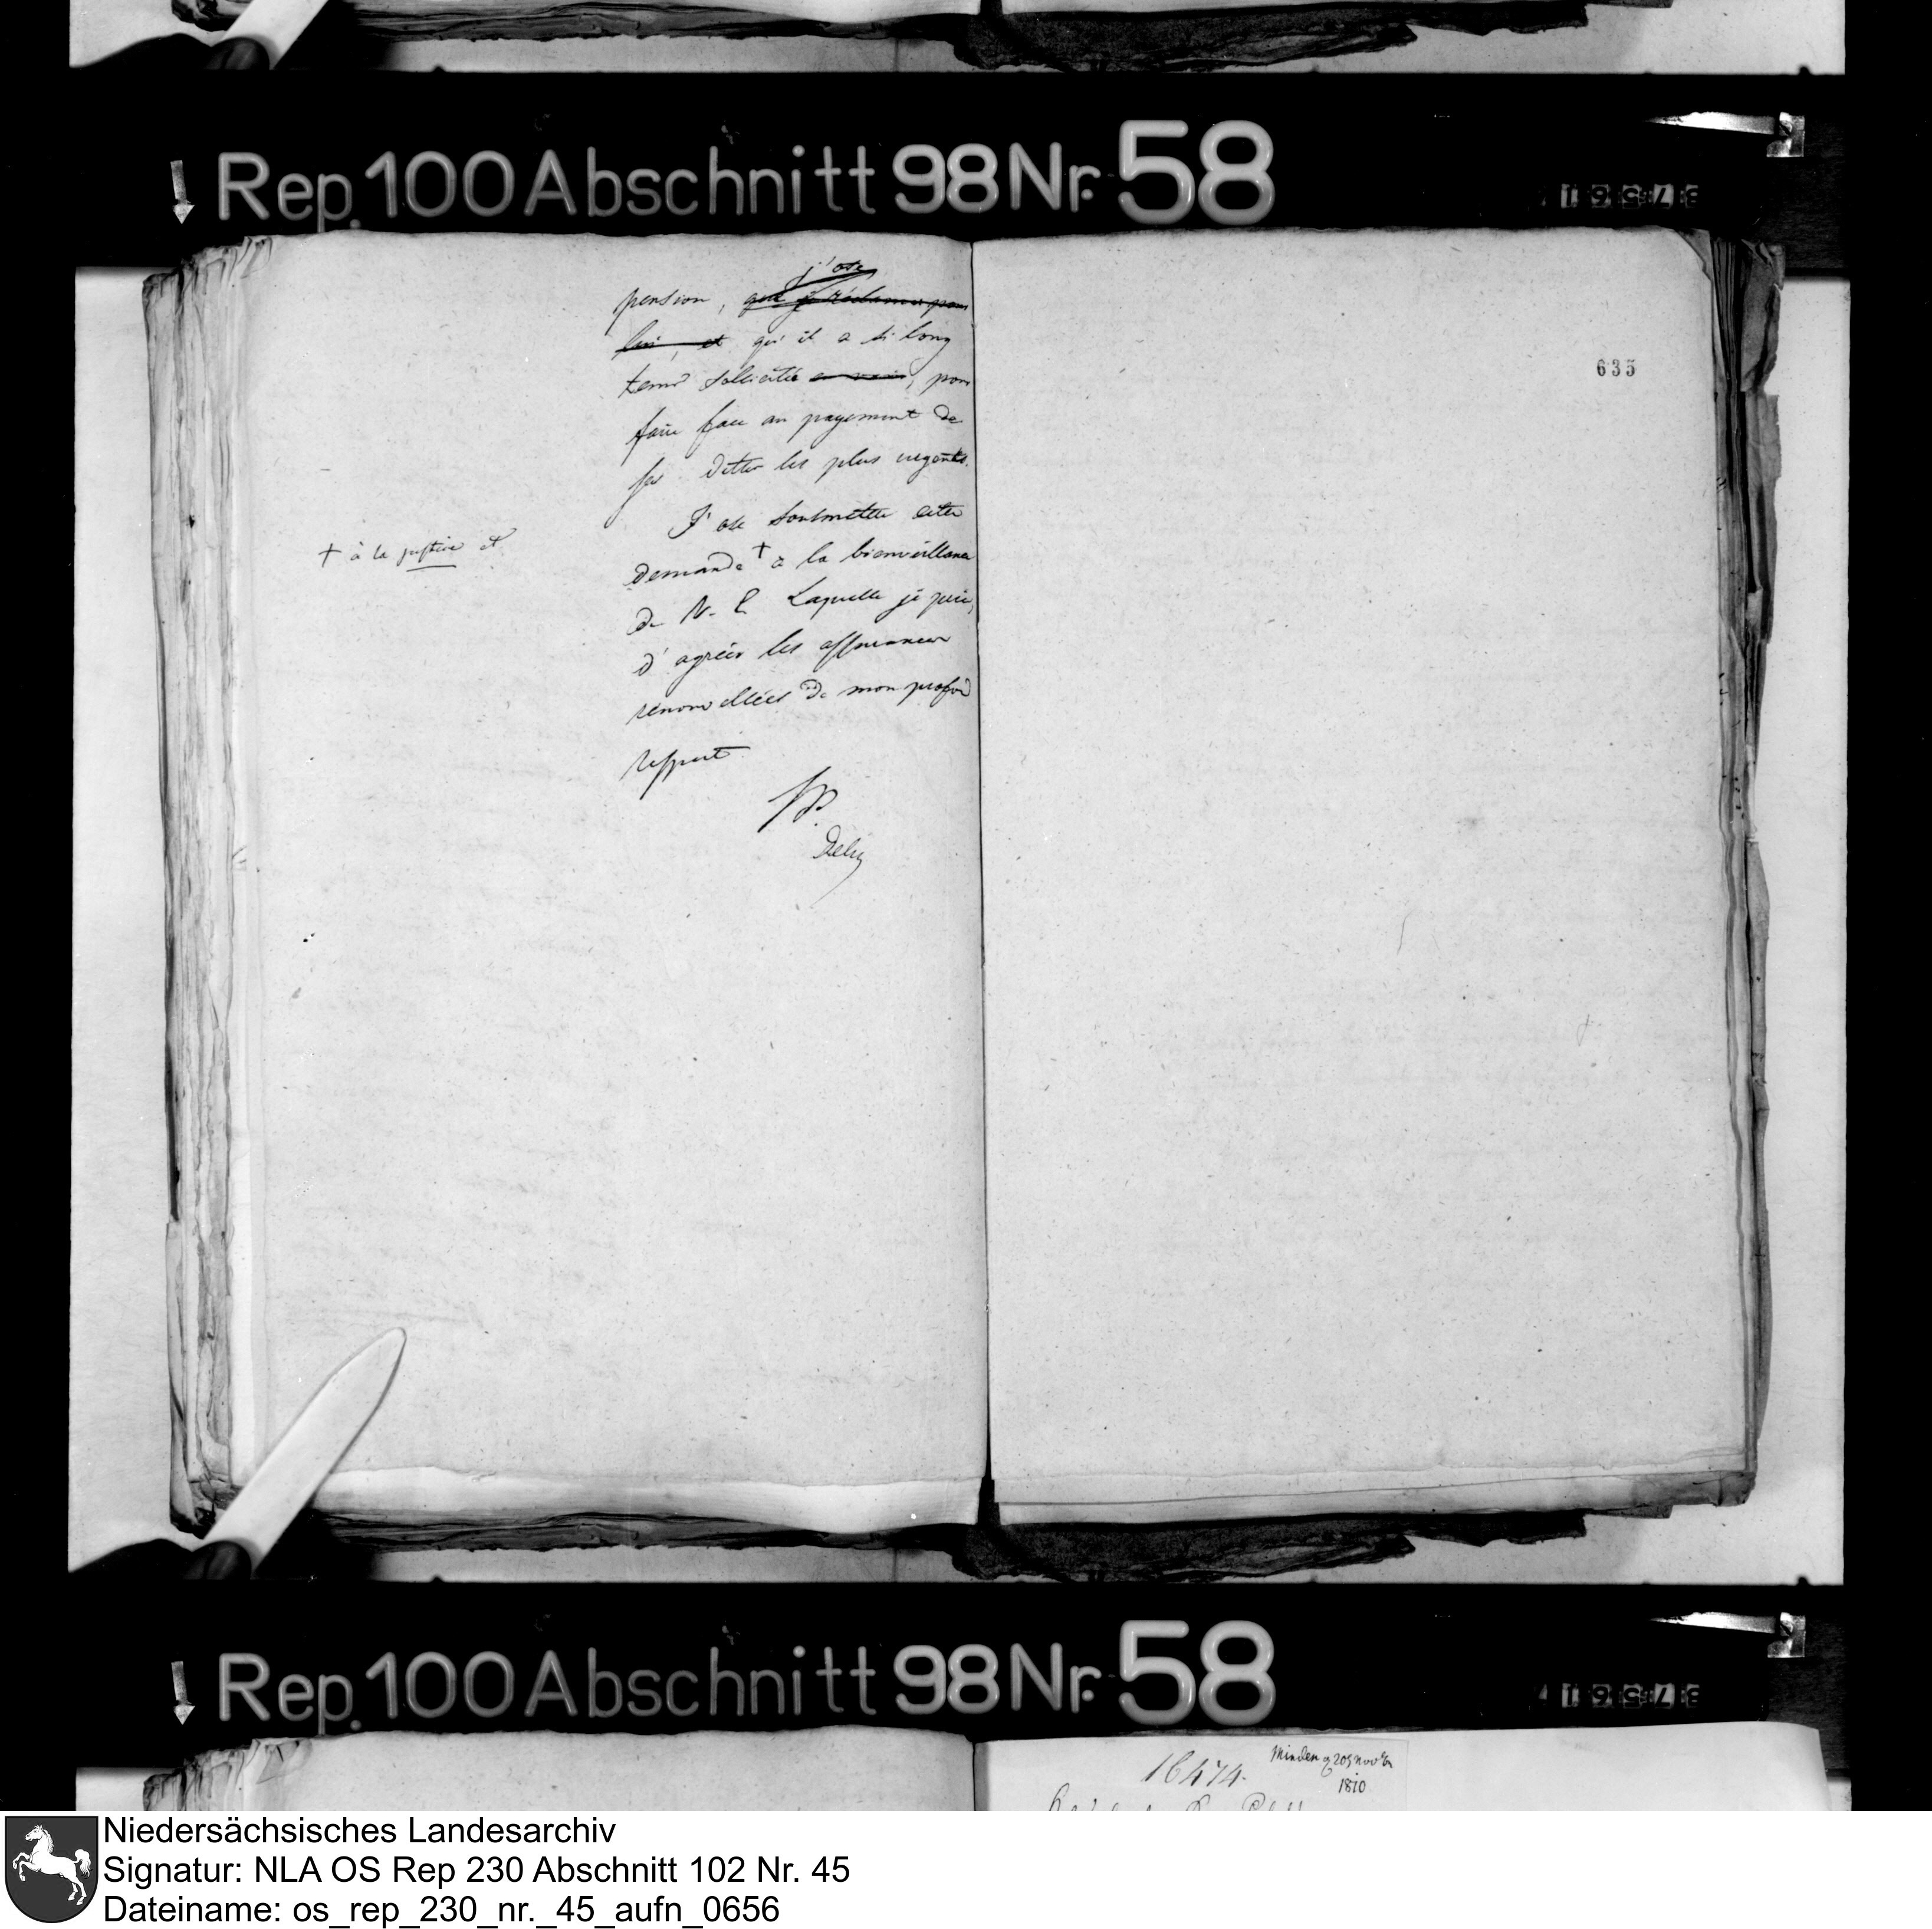 Rep. 100 Abschnitt 98 Nr. 58
j'ose
pension, que je réclame pour
lui, et qu'il a si long
tems sollicitée en vain, pour
faire face au payement de
ses dettes les plus urgents.
J'ose soumettre cette
demande † à la bienveillance
de V. E. Laquelle je prie,
d'agréer les assurances
renouvellées de mon profond
respect
† à la justice et
635
Rep. 100 Abschnitt 98 Nr. 58
16474.
Minden 20 Nov
1810
Niedersächsisches Landesarchiv
Signatur: NLA OS Rep 230 Abschnitt 102 Nr. 45
Dateiname: os_rep_230_nr._45_aufn_0656